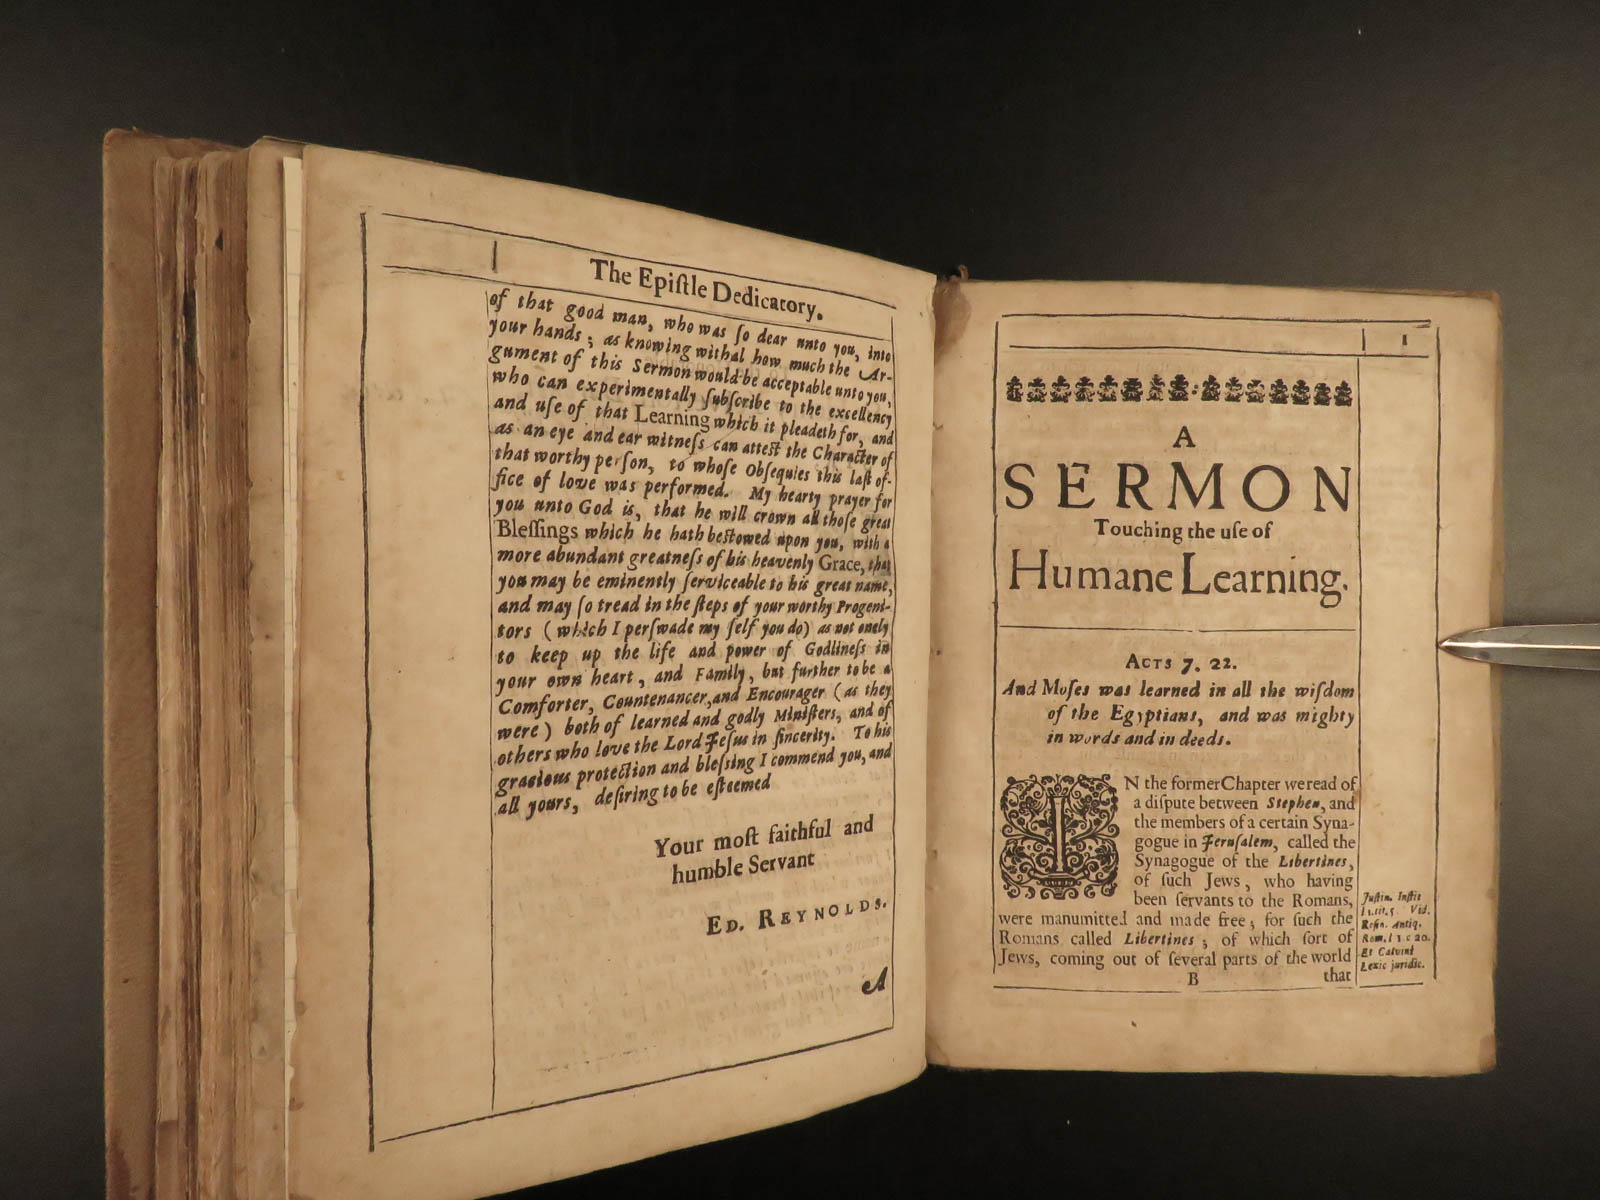 The Epiſtle Dedicatory.
of that good man, who was ſo dear unto you, into
your hands; as knowing withal how much the Ar-
gument of this Sermon would be acceptable unto you,
who can experimentally ſubſcribe to the excellency
and uſe of that Learning which it pleadeth for, and
as an eye and ear witneſs can atteſt the Character of
that worthy perſon, to whoſe Obſequies this laſt of-
fice of love was performed. My hearty prayer for
you unto God is, that he will crown all thoſe great
Bleſſings which he hath beſtowed upon you, with a
more abundant greatneſs of his heavenly Grace, that
you may be eminently ſerviceable to his great name,
and may ſo tread in the ſteps of your worthy Progeni-
tors (which I perſwade my ſelf you do) as not onely
to keep up the life and power of Godlineſs in
your own heart, and Family, but further to be a
Comforter, Countenancer, and Encourager (as they
were) both of learned and godly Miniſters, and of
others who love the Lord Jeſus in ſincerity. To his
gracious protection and bleſſing I commend you, and
all yours, deſiring to be eſteemed
Your moſt faithful and
humble Servant
ED. REYNOLDS.
A
1
A
SERMON
Touching the uſe of
Humane Learning.
ACTS 7. 22.
And Moſes was learned in all the wiſdom
of the Egyptians, and was mighty
in words and in deeds.
IN the former Chapter we read of
a diſpute between Stephen, and
the members of a certain Syna-
gogue in Jeruſalem, called the
Synagogue of the Libertines,
of ſuch Jews, who having
been ſervants to the Romans,
were manumitted and made free; for ſuch the
Romans called Libertines; of which ſort of
Jews, coming out of ſeveral parts of the world
B that
Juſtin. Inſtit
l 1. tit. 5 Vid.
Roſin. Antiq.
Rom. l 1 c 20.
Et Calvini
Lexic juridic.